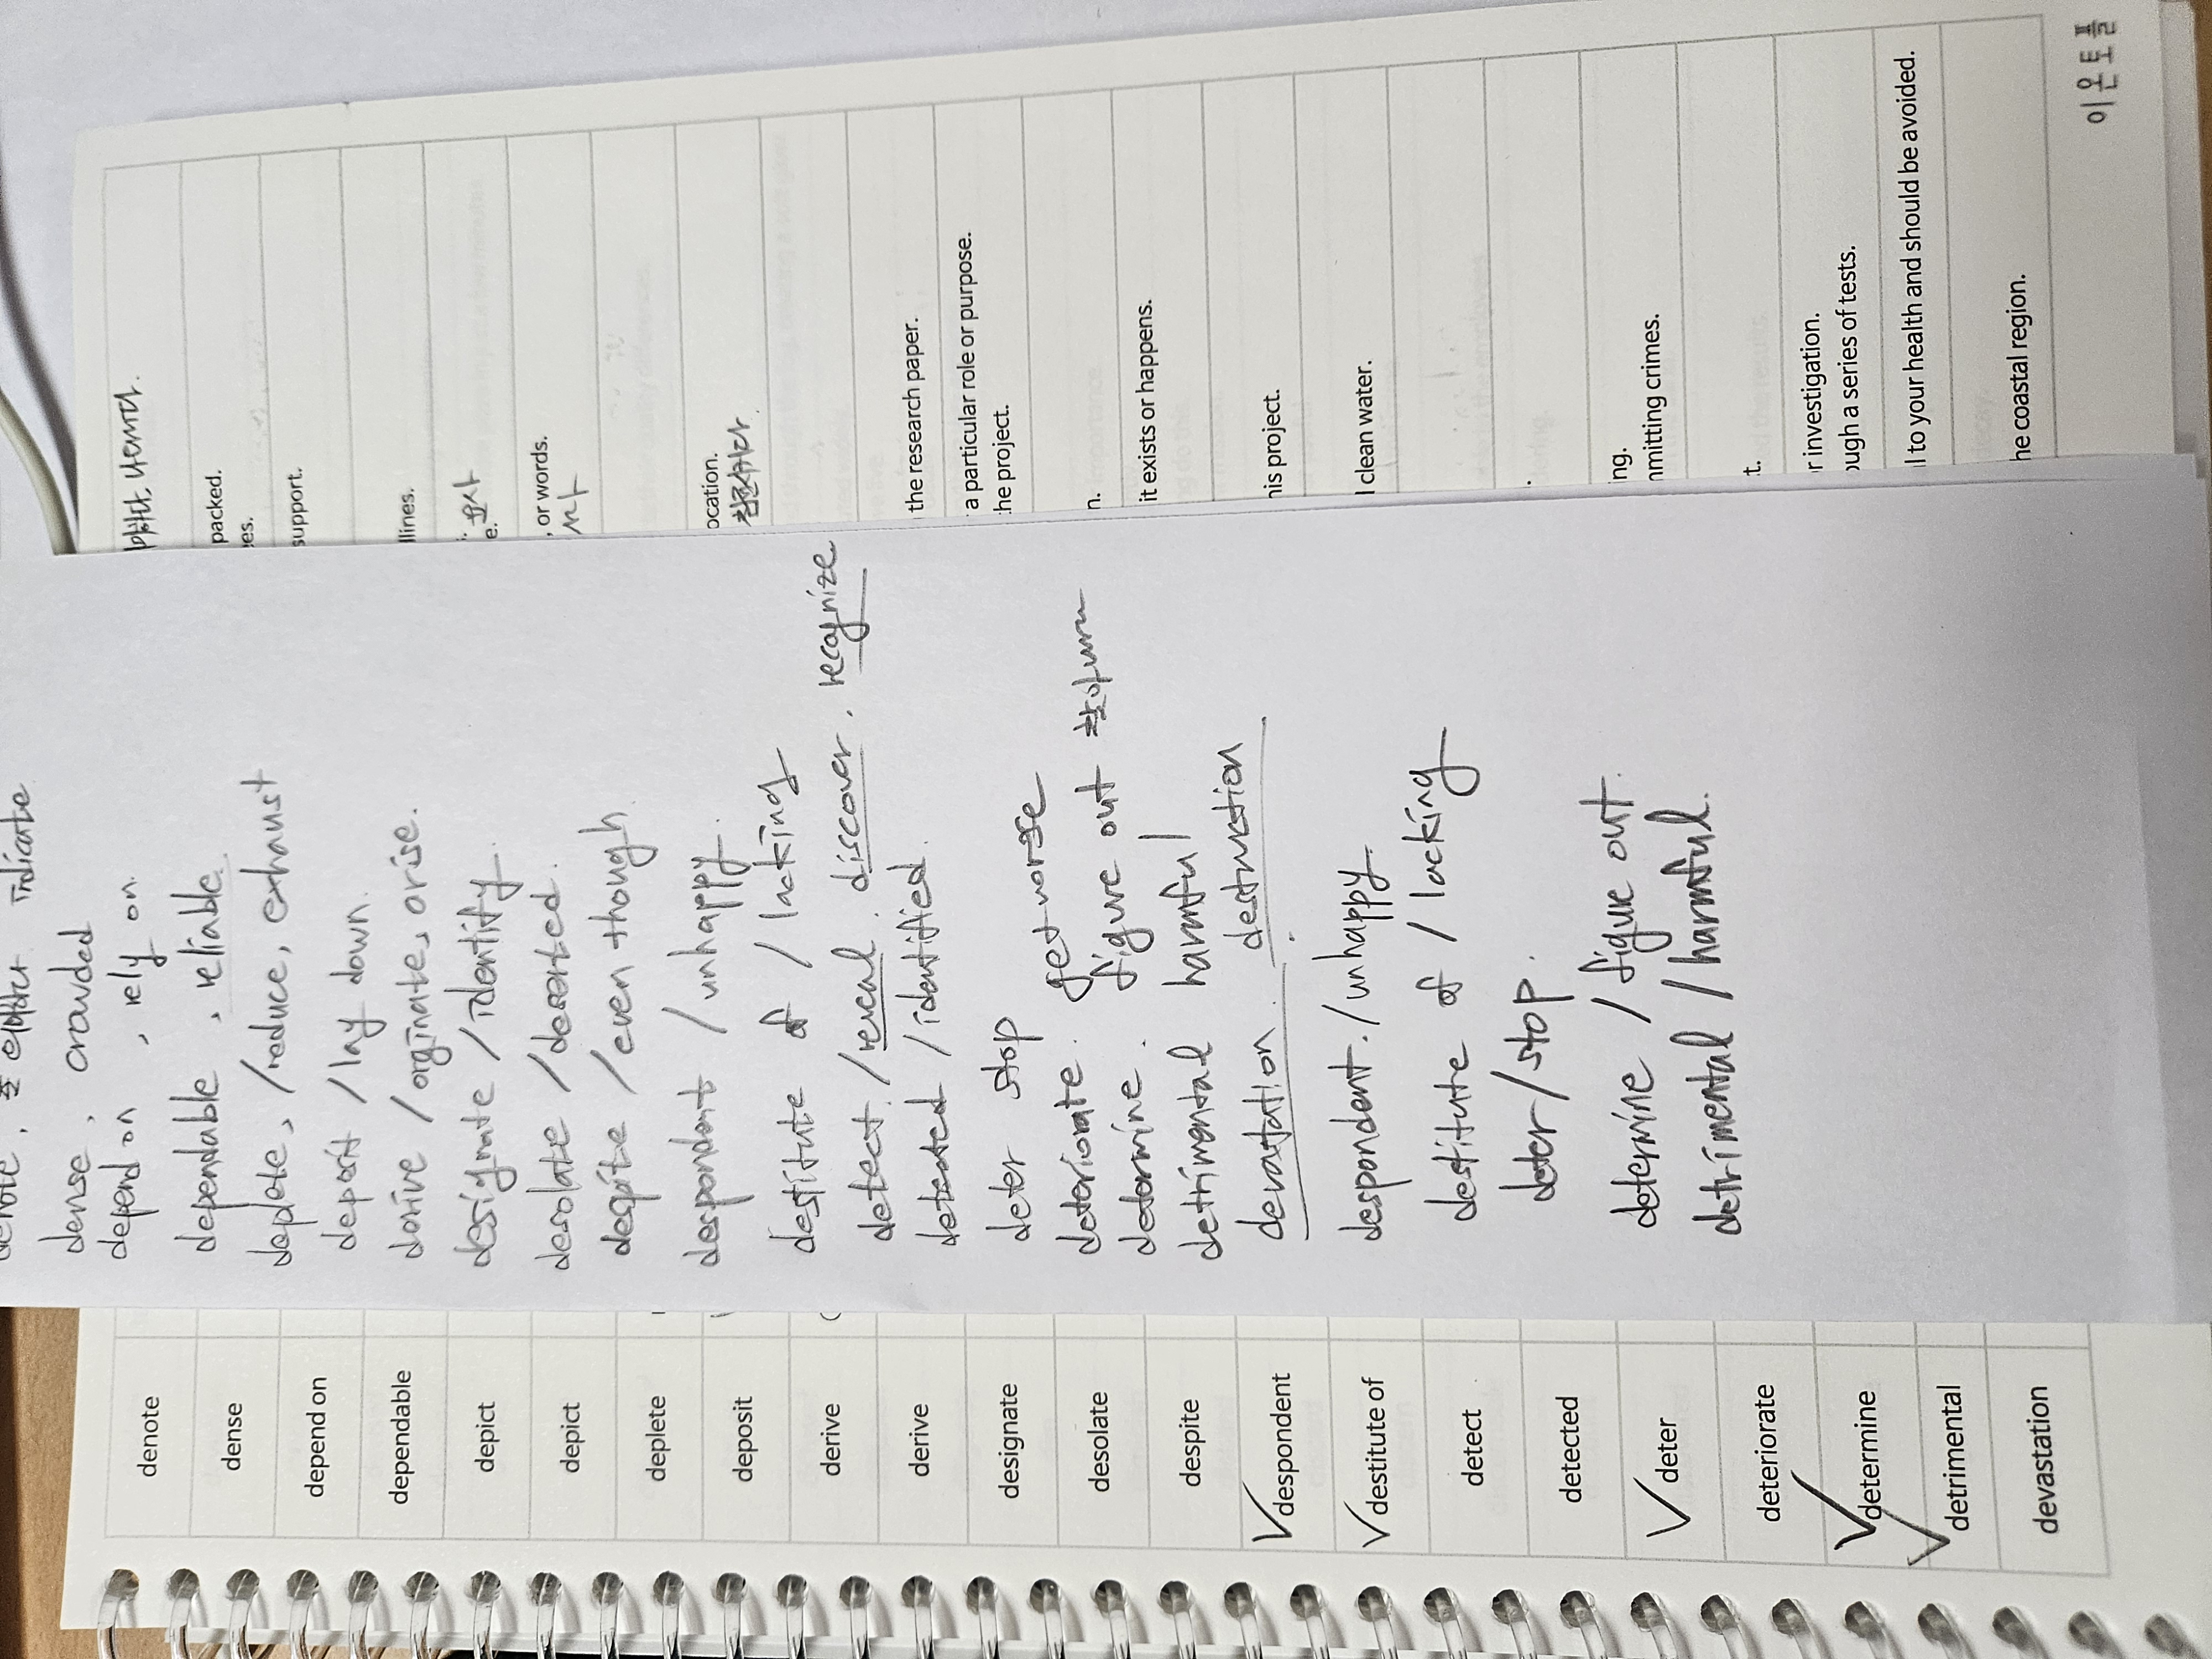 denote
dense
depend on
dependable
depict
depict
deplete
deposit
derive
derive
designate
desolate
despite
✓ despondent
✓ destitute of
detect
detected
✓ deter
deteriorate
✓ determine
✓ detrimental
devastation
denote, indicate
dense, crowded
depend on, rely on.
dependable, reliable.
deplete, /reduce, exhaust
deposit /lay down.
derive /orginate, arise.
designate /identify.
desolate /deserted.
despite /even though
despondent /unhappy.
destitute of /lacking
detect. /reveal. discover. recognize
detected /identified.
deter stop
deteriorate. get worse
determine. figure out
detrimental harmful
devastation. destruction
despondent. /unhappy.
destitute of /lacking
deter/stop.
determine /figure out.
detrimental /harmful.
packed.
ees.
support.
llines.
e.
, or words.
ocation.
the research paper.
a particular role or purpose.
he project.
n.
it exists or happens.
his project.
l clean water.
ng.
nmitting crimes.
t.
r investigation.
ough a series of tests.
l to your health and should be avoided.
he coastal region.
이온토플